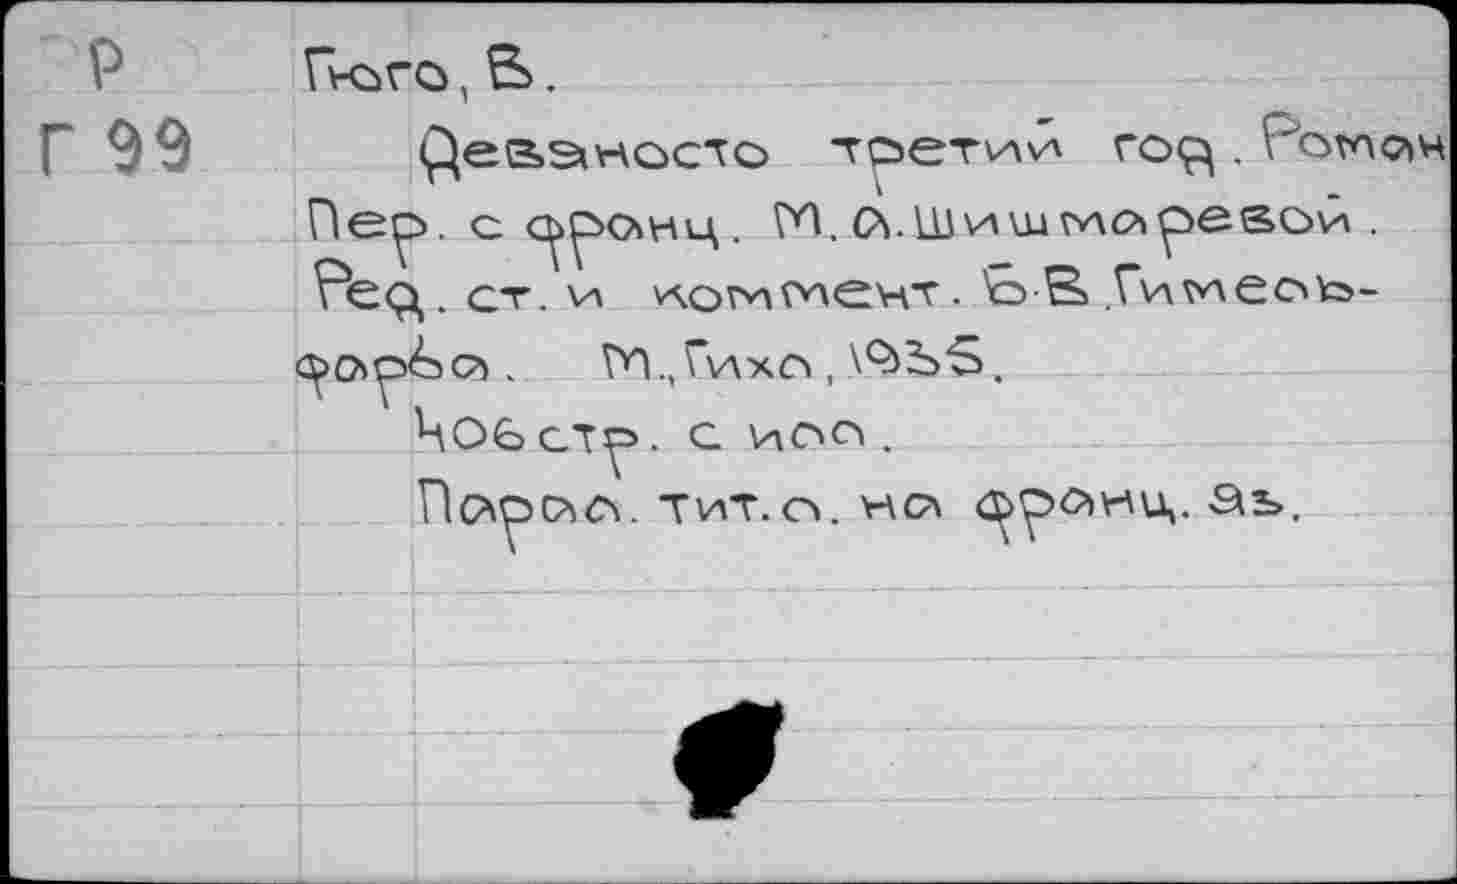 Р Гюго, В.
Г 99 Девяносто третий год. Роман
Пер. с франц. М. А. Шишмаревой.
Ред. ст. и коммент. Б.В. Гимель-
фарба. М., Гихл, 1935.
406 стр. с илл.
Парал. тит. л. на франц. яз.